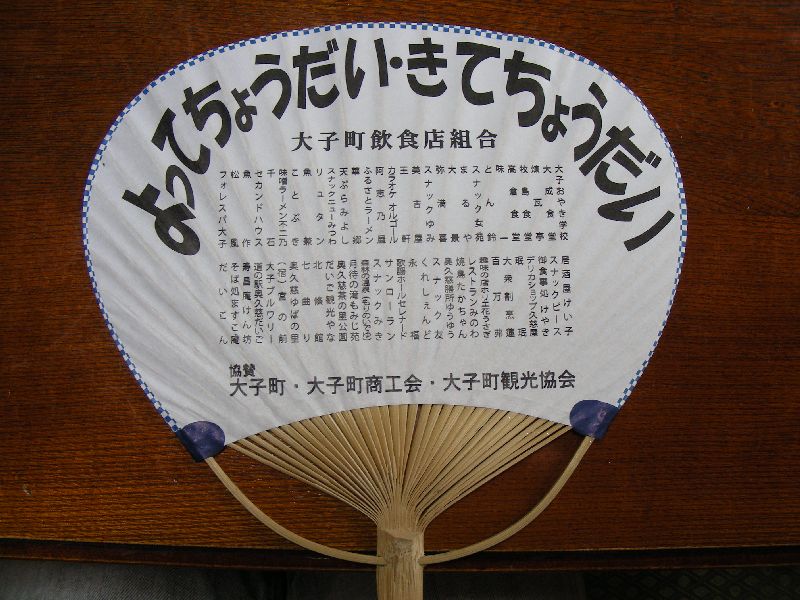 よってちょうだい・きてちょうだい
大子町飲食店組合
大子おやき学校
大成食堂
燦瓦亭
牧島食堂
高倉食堂
味一
とん鈴
スナック女苑
まるや
大景
弥満喜
スナックゆみ
美吉屋
王軒
カラオケオルゴール
阿志乃屋
ふるさとラーメン
華郷
天ぷらみよし
スナックニューみつわ
リュタン
魚兼
ことぶき
味噌ラーメン不二乃
千石
セカンドハウス
魚作
松風
フォレスパ大子
居酒屋けい子
スナックピース
御食事処けやき
デリカショップ久慈屋
珉珉
大衆割烹蓮
百万弗
趣味の店ホリエ花うさぎ
レストランみのわ
焼鳥たかちゃん
奥久慈膳所ゆうゆう
スナック友
くれしぇんど
永福
歌謡ホールセレナード
サンローラン
スナックみき
月待の滝もみじ苑
奥久慈茶の里公園
だいご観光やな
北條館
七曲り
奥久慈ゆばの里
(宿)宮の前
大子ブルワリー
道の駅奥久慈だいご
寿昌庵けん坊
そば処ますこ庵
だいこん
協賛
大子町・大子町商工会・大子町観光協会